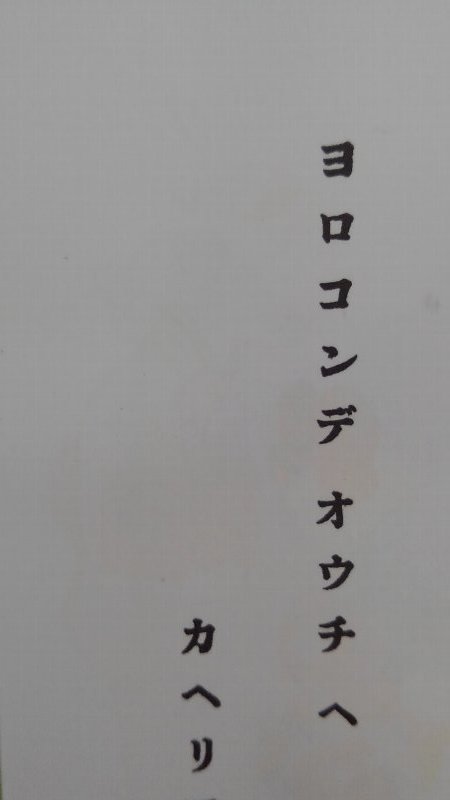 ヨロコンデ オウチヘ
カヘリ